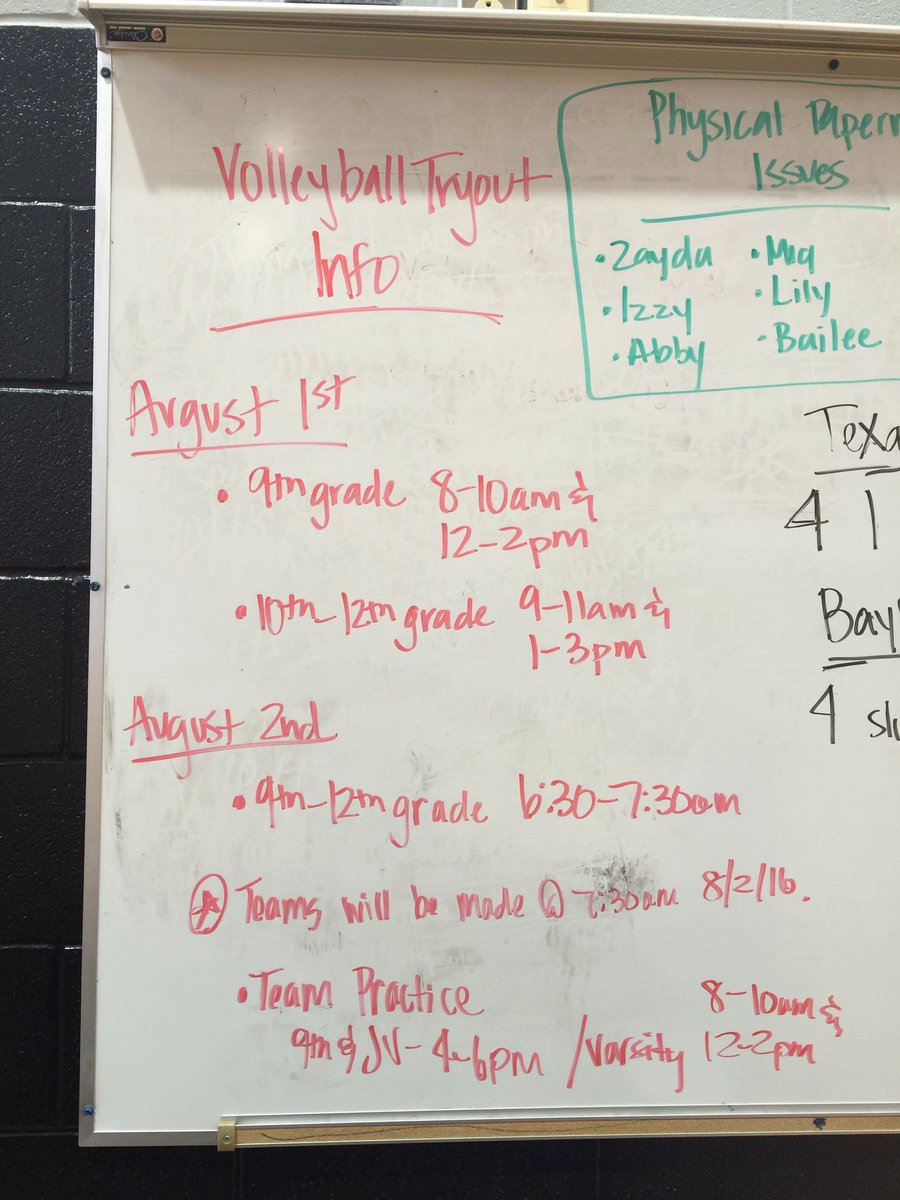 Volleyball Tryout
Info
August 1st
• 9th grade 8-10am &
12-2pm
• 10th-12th grade 9-11am &
1-3pm
August 2nd
• 9th-12th grade 6:30-7:30am
Teams will be made @ 7:30am 8/2/16.
• Team Practice 8-10am &
9th & JV - 4-6pm / Varsity 12-2pm
Physical
Issues
• Zayda • Mia
• Izzy • Lily
• Abby • Bailee
4 1
4